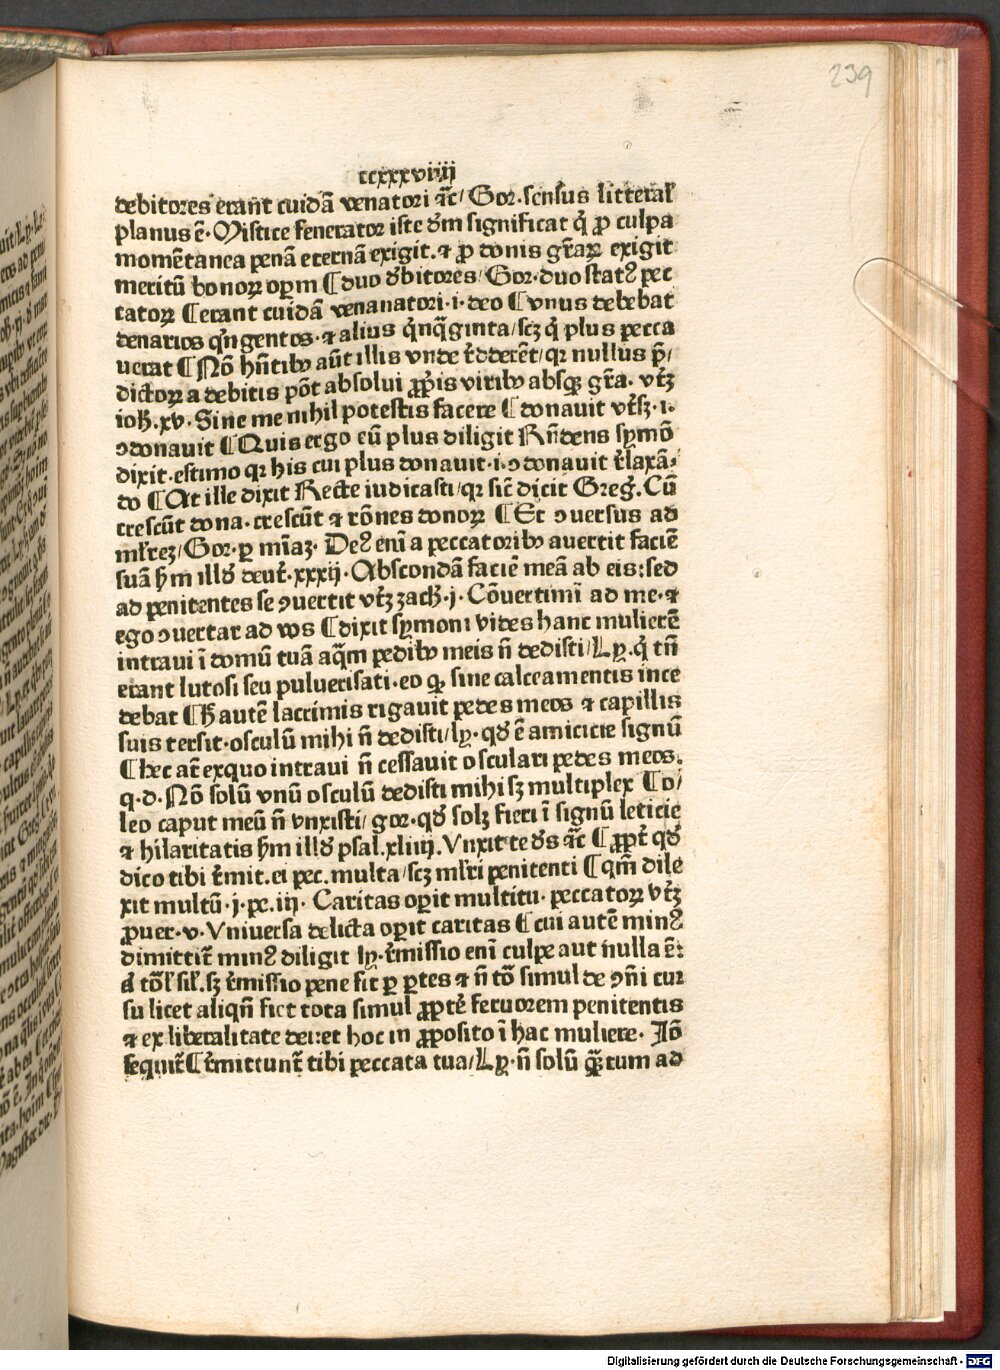 239
ccxxxviiij
debitores erant cuidā venatori ⁊c̄/ Gor. sensus litteral̄
planus ē. Mistice fenerator iste dn̄m significat q̇ ꝓ culpa
momētanea penā eternā exigit. ⁊ ꝓ donis gr̄aꝝ exigit
meritū bonoꝝ oꝑm ¶ duo d̄bitores/ Gor. duo statꝰ pec
catoꝝ ¶ erant cuidā venanatori .i. deo ¶ vnus debebat
denarios qͥngentos. ⁊ alius qͥnqͣginta/ scꝫ qͥ plus pecca
uerat ¶ Nō hn̄tibꝰ aūt illis vnde r̄dderēt/ qꝛ nullus p̄/
dictoꝝ a debitis pōt absolui ꝓpͥis viribꝰ absqꝫ gr̄a. vt̄ꝫ
ioh̄. xv. Sine me nihil potestis facere ¶ donauit vtr̄sꝫ .i.
ꝯdonauit ¶ Quis ergo eū plus diligit Rn̄dens symō
dixit. estimo qꝛ his cui plus donauit .i. ꝯdonauit r̄laxā/
do ¶ At ille dixit Recte iudicasti/ qꝛ sic̄ dicit Greḡ. Cū
crescūt dona. crescūt ⁊ rōnes donoꝝ ¶ Et ꝯuersus ad
ml̄reꝫ/ Gor. ꝑ mīaꝫ. Deꝰ eni a peccatoribꝰ auertit faciē
suā hm̄ illd̄ deut̄. xxxij. Abscondā faciē meā ab eis: sed
ad penitentes se ꝯuertit vt̄ꝫ zach̄. j. Cōuertimī ad me. ⁊
ego ꝯuertar ad vos ¶ dixit symoni vides hanc mulierē
intraui ī domū tuā aqͣm pedibꝰ meis n̄ dedisti/ Ly. qͥ tn̄
erant lutosi seu puluerisati. eo ꝙ sine calceamentis ince
debat ¶ H̄ autē lacrimis rigauit pedes meos ⁊ capillis
suis tersit. osculū mihi n̄ dedisti/ ly. qd̄ ē amicicie signū
¶ hec at̄ exquo intraui n̄ cessauit osculari pedes meos.
q. d. Nō solū vnū osculū dedisti mihi sꝫ multiplex ¶ o/
leo caput meū n̄ vnxisti/ gor. qd̄ solꝫ fieri ī signū leticie
⁊ hilaritatis hm̄ illd̄ psal. xliiij. Vnxit te d̄s ⁊c̄ ¶ ꝓpt̄ qd̄
dico tibi r̄mit. ei pec. multa/ scꝫ ml̄ri penitenti ¶ qm̄ dile
xit multū. j. pe. iij. Caritas oꝑit multitu. peccatoꝝ vt̄ꝫ
ꝓuer. v. Vniuersa delicta oꝑit caritas ¶ cui autē minꝰ
dimittit̄ minꝰ diligit ly. r̄missio eni culpe aut nulla ē:
tōl̄ sil̄. sꝫ r̄missio pene fit ꝑ ꝑtes ⁊ n̄ tō simul de ꝯn̄i cur
su licet aliqn̄ fiet tota simul ꝓpt̄ feruorem penitentis
⁊ ex liberalitate dei: et hoc in ꝓposito ī hac muliere. Iō
sequit̄ ¶ r̄mittunt̄ tibi peccata tua/ Ly. n̄ solū qͣꝫtum ad
Digitalisierung gefördert durch die Deutsche Forschungsgemeinschaft - DFG